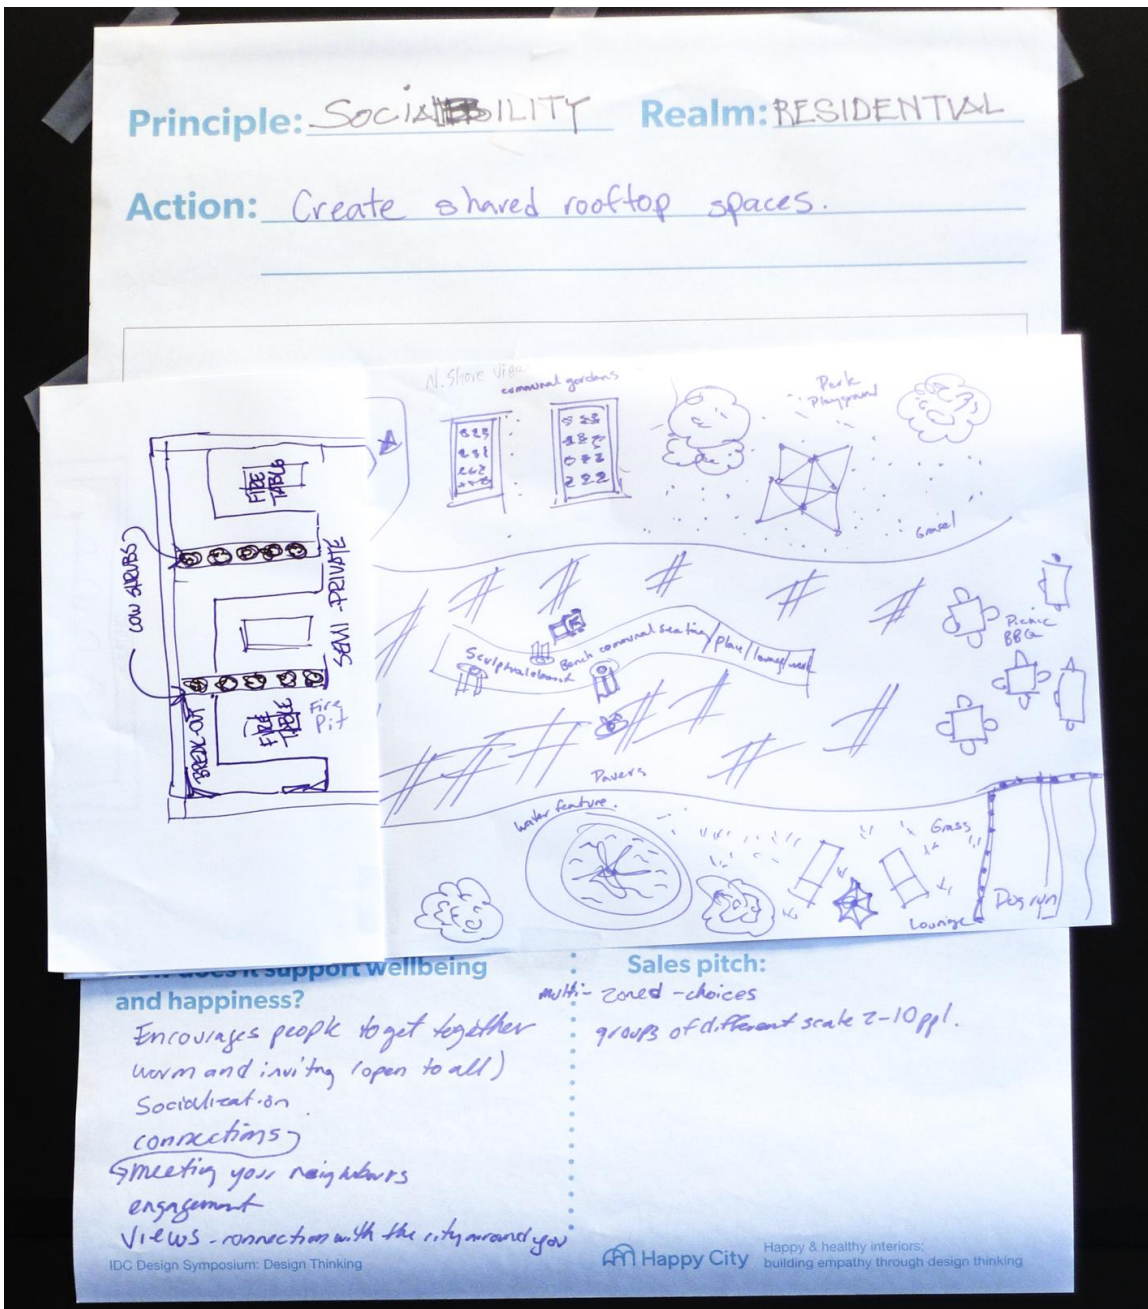 Principle: SOCIABILITY Realm: RESIDENTIAL
Action: Create shared rooftop spaces.
N. Shore View
communal gardens
Park
Playground
Gravel
LOW SHRUBS
FIRE
TABLE
SEMI-PRIVATE
BREAK-OUT
FIRE
TABLE
Fire
Pit
Sculptural
Bench communal seating/play/lounge/work
Picnic
BBQ
Pavers
water feature.
Grass
Lounge
Dog run
How does it support wellbeing
and happiness?
Encourages people to get together
warm and inviting (open to all)
Socialization
connections
meeting your neighbours
engagement
Views - connection with the city around you
Sales pitch:
multi-zoned - choices
groups of different scale 2-10 ppl.
IDC Design Symposium: Design Thinking
Happy City
Happy & healthy interiors;
building empathy through design thinking